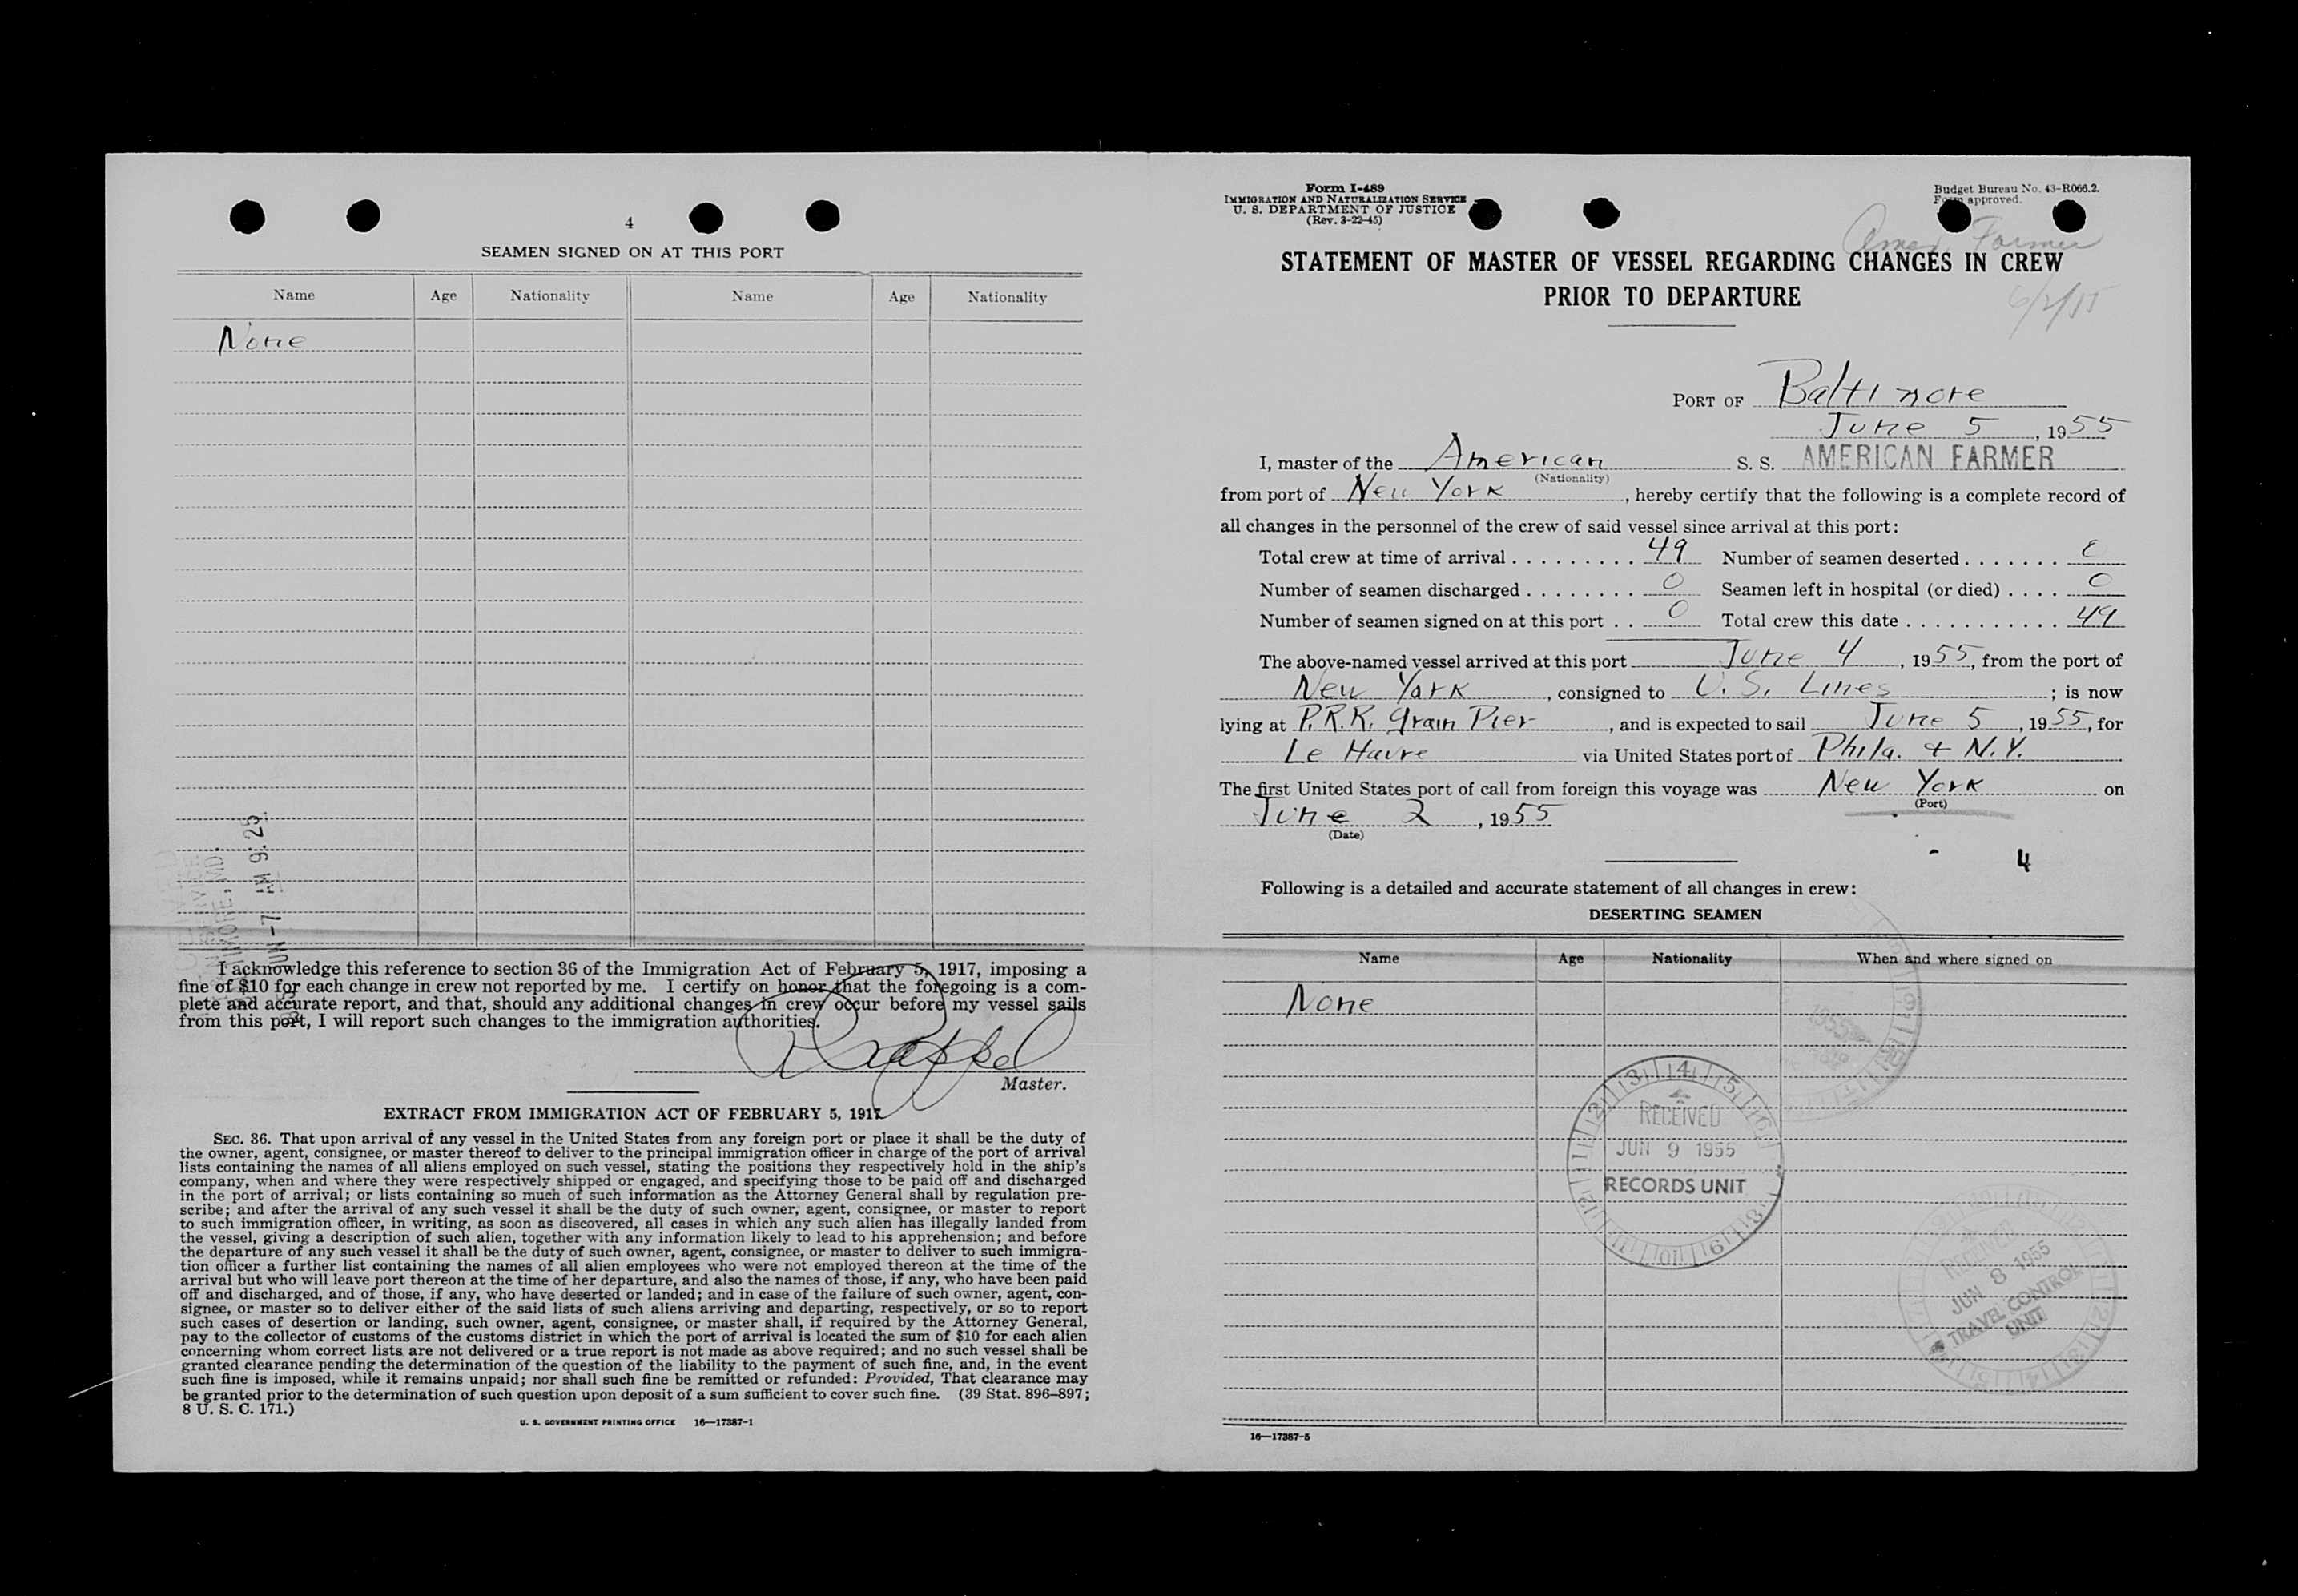 4
SEAMEN SIGNED ON AT THIS PORT
Name Age Nationality Name Age Nationality
None
JUN -7 AM 9:25
I acknowledge this reference to section 36 of the Immigration Act of February 5, 1917, imposing a
fine of $10 for each change in crew not reported by me. I certify on honor that the foregoing is a com-
plete and accurate report, and that, should any additional changes in crew occur before my vessel sails
from this port, I will report such changes to the immigration authorities.
Master.
EXTRACT FROM IMMIGRATION ACT OF FEBRUARY 5, 1917
SEC. 36. That upon arrival of any vessel in the United States from any foreign port or place it shall be the duty of
the owner, agent, consignee, or master thereof to deliver to the principal immigration officer in charge of the port of arrival
lists containing the names of all aliens employed on such vessel, stating the positions they respectively hold in the ship's
company, when and where they were respectively shipped or engaged, and specifying those to be paid off and discharged
in the port of arrival; or lists containing so much of such information as the Attorney General shall by regulation pre-
scribe; and after the arrival of any such vessel it shall be the duty of such owner, agent, consignee, or master to report
to such immigration officer, in writing, as soon as discovered, all cases in which any such alien has illegally landed from
the vessel, giving a description of such alien, together with any information likely to lead to his apprehension; and before
the departure of any such vessel it shall be the duty of such owner, agent, consignee, or master to deliver to such immigra-
tion officer a further list containing the names of all alien employees who were not employed thereon at the time of the
arrival but who will leave port thereon at the time of her departure, and also the names of those, if any, who have been paid
off and discharged, and of those, if any, who have deserted or landed; and in case of the failure of such owner, agent, con-
signee, or master so to deliver either of the said lists of such aliens arriving and departing, respectively, or so to report
such cases of desertion or landing, such owner, agent, consignee, or master shall, if required by the Attorney General,
pay to the collector of customs of the customs district in which the port of arrival is located the sum of $10 for each alien
concerning whom correct lists are not delivered or a true report is not made as above required; and no such vessel shall be
granted clearance pending the determination of the question of the liability to the payment of such fine, and, in the event
such fine is imposed, while it remains unpaid; nor shall such fine be remitted or refunded: Provided, That clearance may
be granted prior to the determination of such question upon deposit of a sum sufficient to cover such fine. (39 Stat. 896–897;
8 U. S. C. 171.)
U. S. GOVERNMENT PRINTING OFFICE 16—17387-1
Form I-489
IMMIGRATION AND NATURALIZATION SERVICE
U. S. DEPARTMENT OF JUSTICE
(Rev. 3-22-45)
Budget Bureau No. 43-R066.2.
Form approved.
Amer. Farmer
6/2/55
STATEMENT OF MASTER OF VESSEL REGARDING CHANGES IN CREW
PRIOR TO DEPARTURE
PORT OF Baltimore
June 5, 1955
I, master of the American S. S. AMERICAN FARMER
(Nationality)
from port of New York, hereby certify that the following is a complete record of
all changes in the personnel of the crew of said vessel since arrival at this port:
Total crew at time of arrival . . . . . . . . . 49 Number of seamen deserted . . . . . . . 0
Number of seamen discharged . . . . . . . . 0 Seamen left in hospital (or died) . . . . 0
Number of seamen signed on at this port . . 0 Total crew this date . . . . . . . . . . . 49
The above-named vessel arrived at this port June 4, 1955, from the port of
New York, consigned to U. S. Lines; is now
lying at P.R.R. Grain Pier, and is expected to sail June 5, 1955, for
Le Havre via United States port of Phila. + N.Y.
The first United States port of call from foreign this voyage was New York on
(Port)
June 2, 1955
(Date)
4
Following is a detailed and accurate statement of all changes in crew:
DESERTING SEAMEN
Name Age Nationality When and where signed on
None
1955
RECEIVED
JUN 9 1955
RECORDS UNIT
RECEIVED
JUN 8 1955
TRAVEL CONTROL
UNIT
16—17387-5